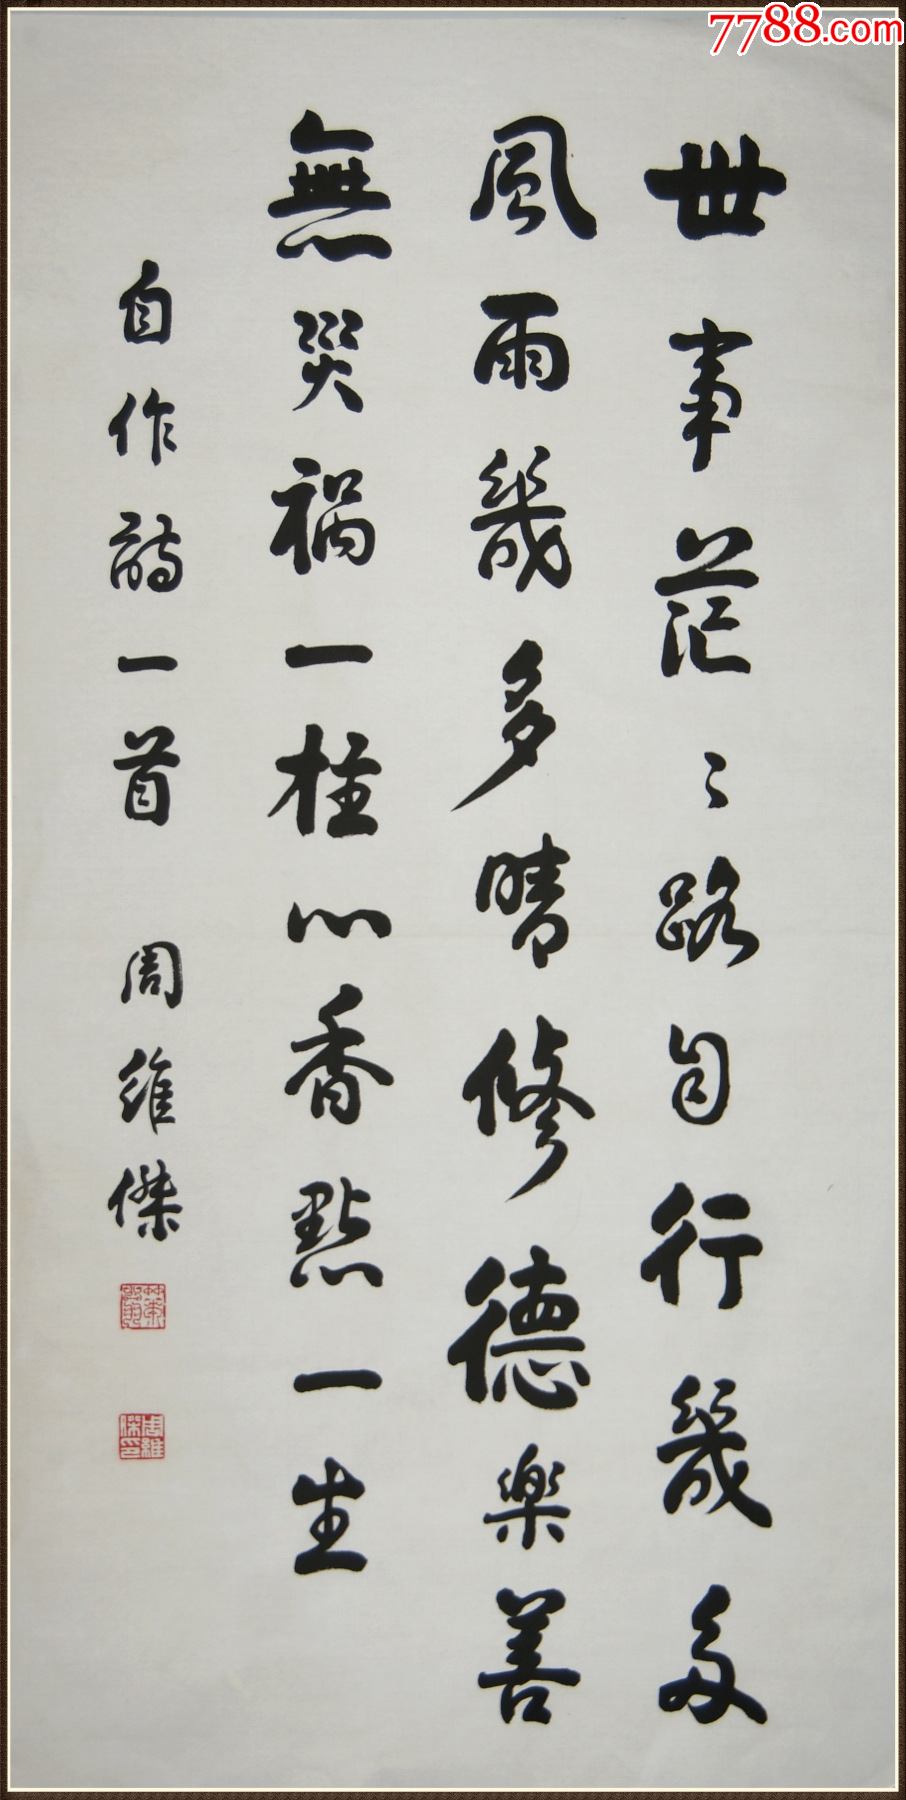 7788.com
世事茫〻路自行幾多
風雨幾多晴修德樂善
無災祸一柱心香點一生
自作詩一首 周維傑
周維傑印